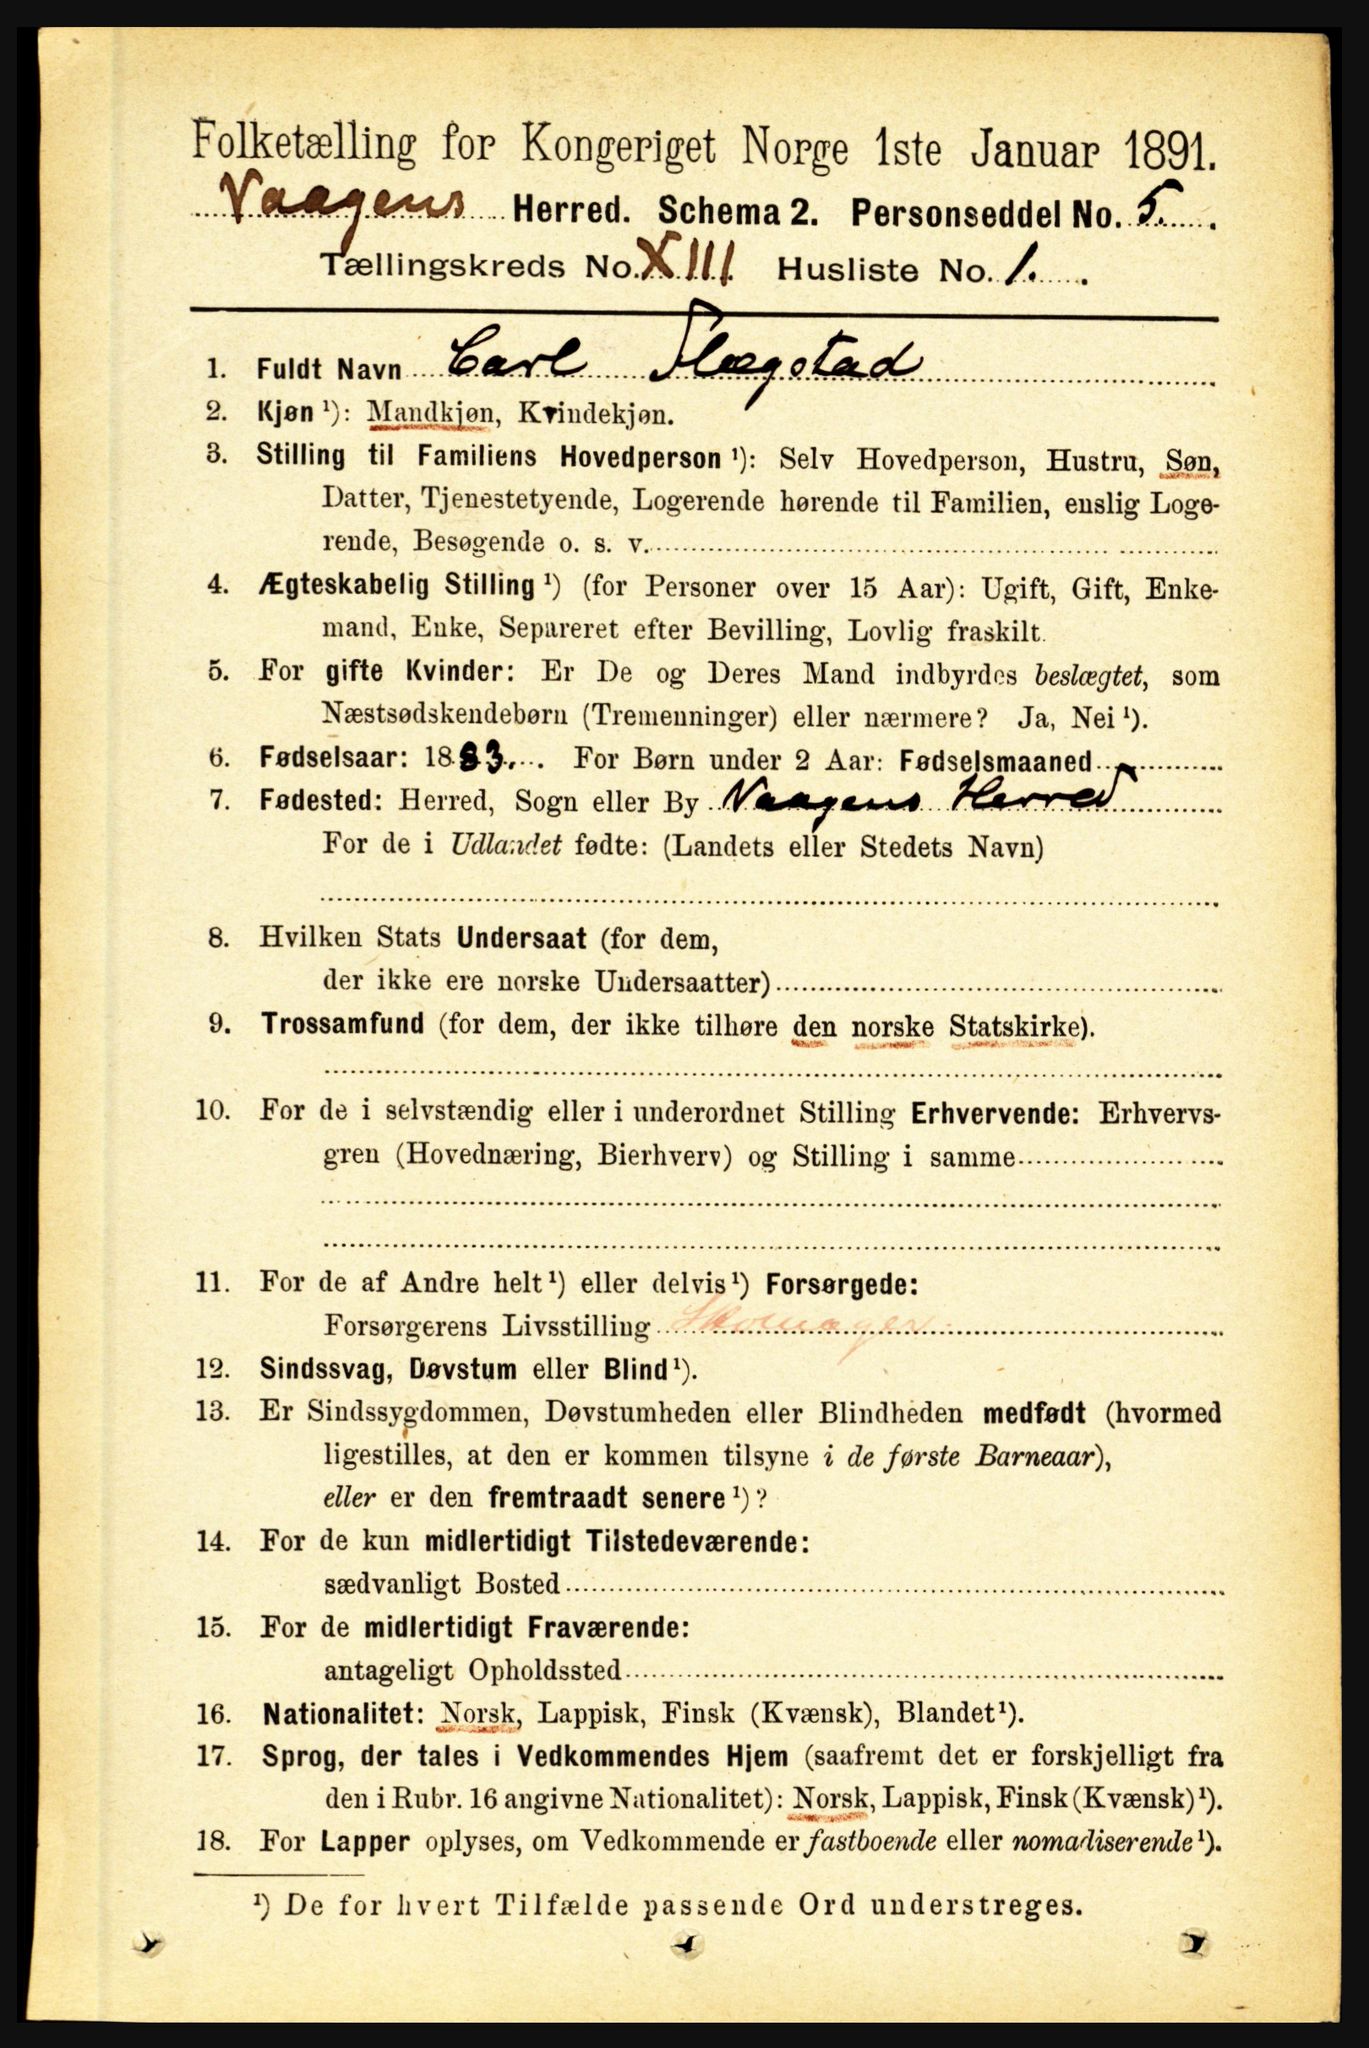 Folketælling for Kongeriget Norge 1ste Januar 1891.
Vaagens Herred. Schema 2. Personseddel No. 5.
Tællingskreds No. XIII Husliste No. 1.
1. Fuldt Navn Carl Flægstad
2. Kjøn ¹): Mandkjøn, Kvindekjøn.
3. Stilling til Familiens Hovedperson ¹): Selv Hovedperson, Hustru, Søn,
Datter, Tjenestetyende, Logerende hørende til Familien, enslig Loge-
rende, Besøgende o. s. v.
4. Ægteskabelig Stilling ¹) (for Personer over 15 Aar): Ugift, Gift, Enke-
mand, Enke, Separeret efter Bevilling, Lovlig fraskilt.
5. For gifte Kvinder: Er De og Deres Mand indbyrdes beslægtet, som
Næstsødskendebørn (Tremenninger) eller nærmere? Ja, Nei ¹).
6. Fødselsaar: 1883. For Børn under 2 Aar: Fødselsmaaned
7. Fødested: Herred, Sogn eller By Vaagens Herred
For de i Udlandet fødte: (Landets eller Stedets Navn)
8. Hvilken Stats Undersaat (for dem,
der ikke ere norske Undersaatter)
9. Trossamfund (for dem, der ikke tilhøre den norske Statskirke).
10. For de i selvstændig eller i underordnet Stilling Erhvervende: Erhvervs-
gren (Hovednæring, Bierhverv) og Stilling i samme
11. For de af Andre helt ¹) eller delvis ¹) Forsørgede:
Forsørgerens Livsstilling Skomager.
12. Sindssvag, Døvstum eller Blind ¹).
13. Er Sindssygdommen, Døvstumheden eller Blindheden medfødt (hvormed
ligestilles, at den er kommen tilsyne i de første Barneaar),
eller er den fremtraadt senere ¹)?
14. For de kun midlertidigt Tilstedeværende:
sædvanligt Bosted
15. For de midlertidigt Fraværende:
antageligt Opholdssted
16. Nationalitet: Norsk, Lappisk, Finsk (Kvænsk), Blandet ¹).
17. Sprog, der tales i Vedkommendes Hjem (saafremt det er forskjelligt fra
den i Rubr. 16 angivne Nationalitet): Norsk, Lappisk, Finsk (Kvænsk) ¹).
18. For Lapper oplyses, om Vedkommende er fastboende eller nomadiserende ¹).
¹) De for hvert Tilfælde passende Ord understreges.